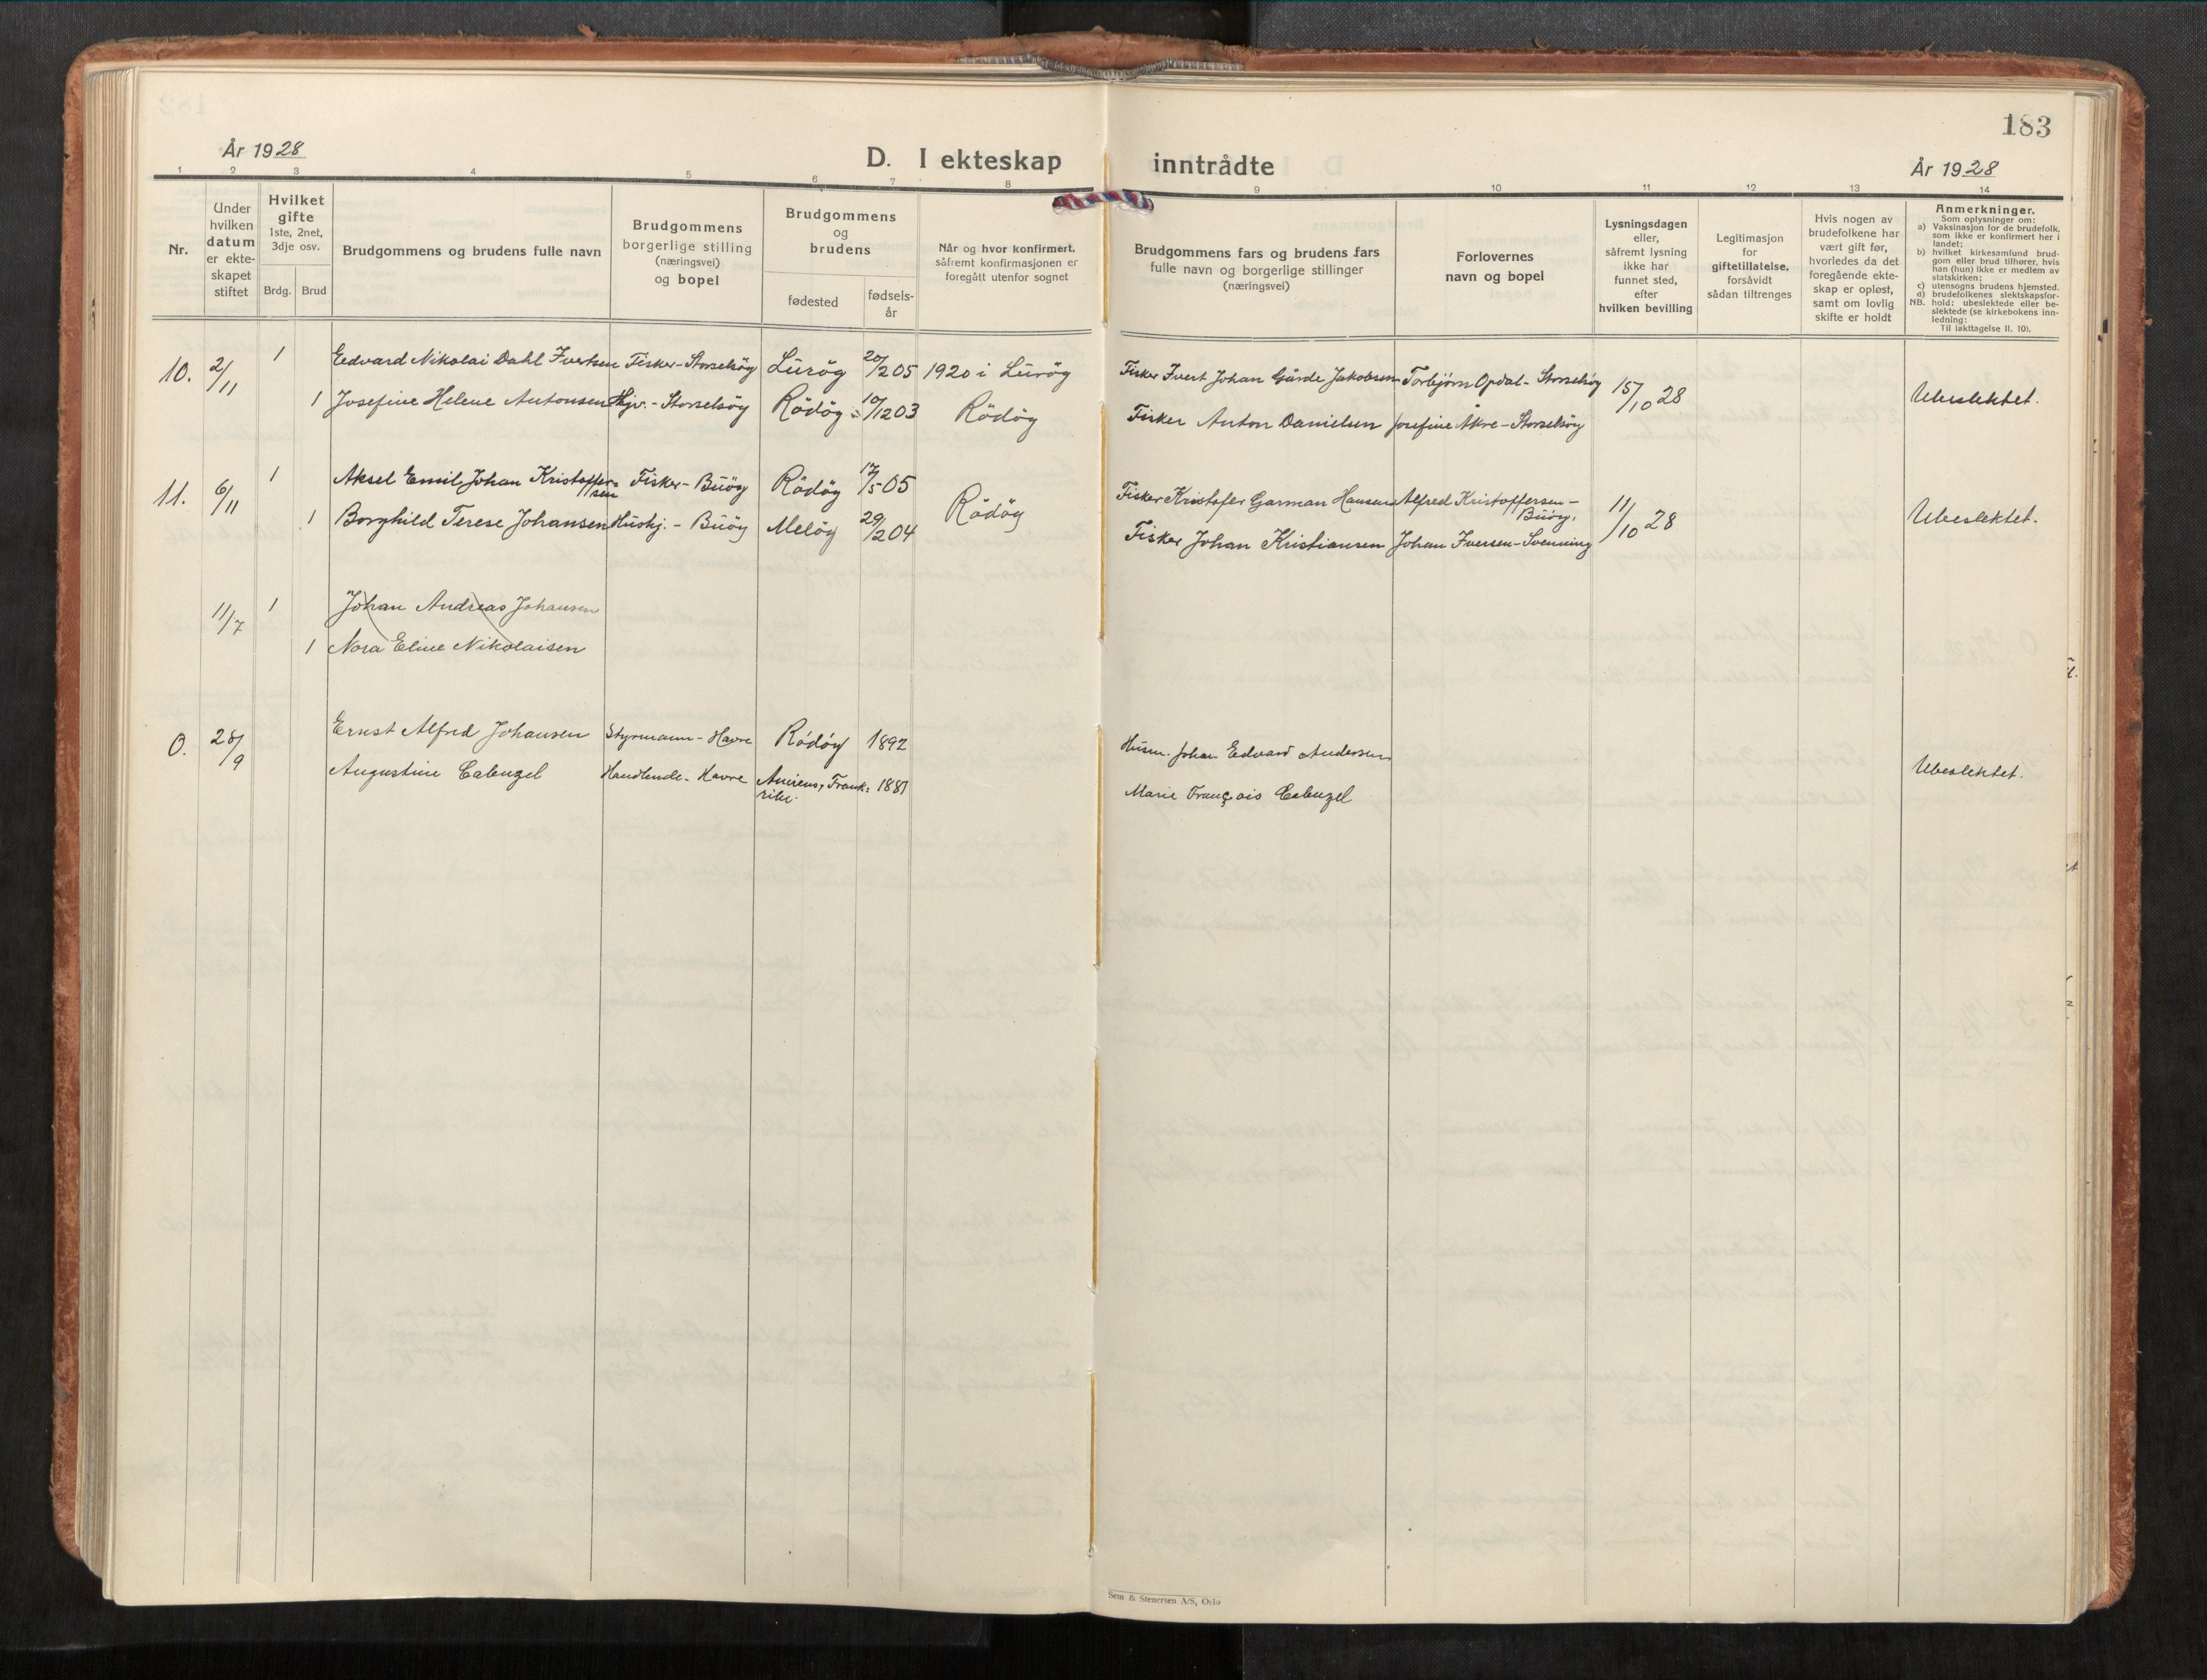 183
År 1928
D. I ekteskap inntrådte
År 1928
1 2 3 4 5 6 7 8 9 10 11 12 13 14
Nr.
Under
hvilken
datum
er ekte-
skapet
stiftet
Hvilket
gifte
1ste, 2net,
3dje osv.
Brdg. Brud
Brudgommens og brudens fulle navn
Brudgommens
borgerlige stilling
(næringsvei)
og bopel
Brudgommens
og
brudens
fødested
fødsels-
år
Når og hvor konfirmert,
såfremt konfirmasjonen er
foregått utenfor sognet
Brudgommens fars og brudens fars
fulle navn og borgerlige stillinger
(næringsvei)
Forlovernes
navn og bopel
Lysningsdagen
eller,
såfremt lysning
ikke har
funnet sted,
efter
hvilken bevilling
Legitimasjon
for
giftetillatelse,
forsåvidt
sådan tiltrenges
Hvis nogen av
brudefolkene har
vært gift før,
hvorledes da det
foregående ekte-
skap er opløst,
samt om lovlig
skifte er holdt
Anmerkninger.
Som oplysninger om:
a) Vaksinasjon for de brudefolk,
som ikke er konfirmert her i
landet;
b) hvilket kirkesamfund brud-
gom eller brud tilhører, hvis
han (hun) ikke er medlem av
statskirken;
c) utensogns brudens hjemsted.
d) brudefolkenes slektskapsfor-
NB. hold: ubeslektede eller be-
slektede (se kirkebokens inn-
ledning:
Til iakttagelse II. 10).
10. 2/11 1 Edvard Nikolai Dahl Ivertsen Fisker - Storselsøy Lurøy 20/2 05 1920 i Lurøy Fisker Ivert Johan Gürde Jakobsen Torbjørn Opdal - Storselsøy 15/10 28 Ubeslektet.
1 Josefine Helene Antonsen Hjv. - Storselsøy Rödöy 10/12 03 Rödöy Fisker Anton Danielsen Josefine Åkre - Storselsöy
11. 6/11 1 Aksel Emil Johan Kristoffer-
sen Fisker - Buöy Rödöy 17/5 05 Rödöy Fisker Kristofer Garman Hansen Alfred Kristoffersen -
Buöy. 11/10 28 Ubeslektet.
1 Borghild Terese Johansen Hushj. - Buöy Melöy 29/2 04 Fisker Johan Kristiansen Johan Iversen - Svenning
11/7 1 Johan Andreas Johansen
1 Nora Eline Nikolaisen
0. 28/9 Ernst Alfred Johansen Styrmann - Havre Rödöy 1892 Husm. Johan Edvard Andersen Ubeslektet.
Augustine Handlende - Havre Amiens, Frank-
rike. 1881 Marie François
Sem & Stenersen A/S, Oslo